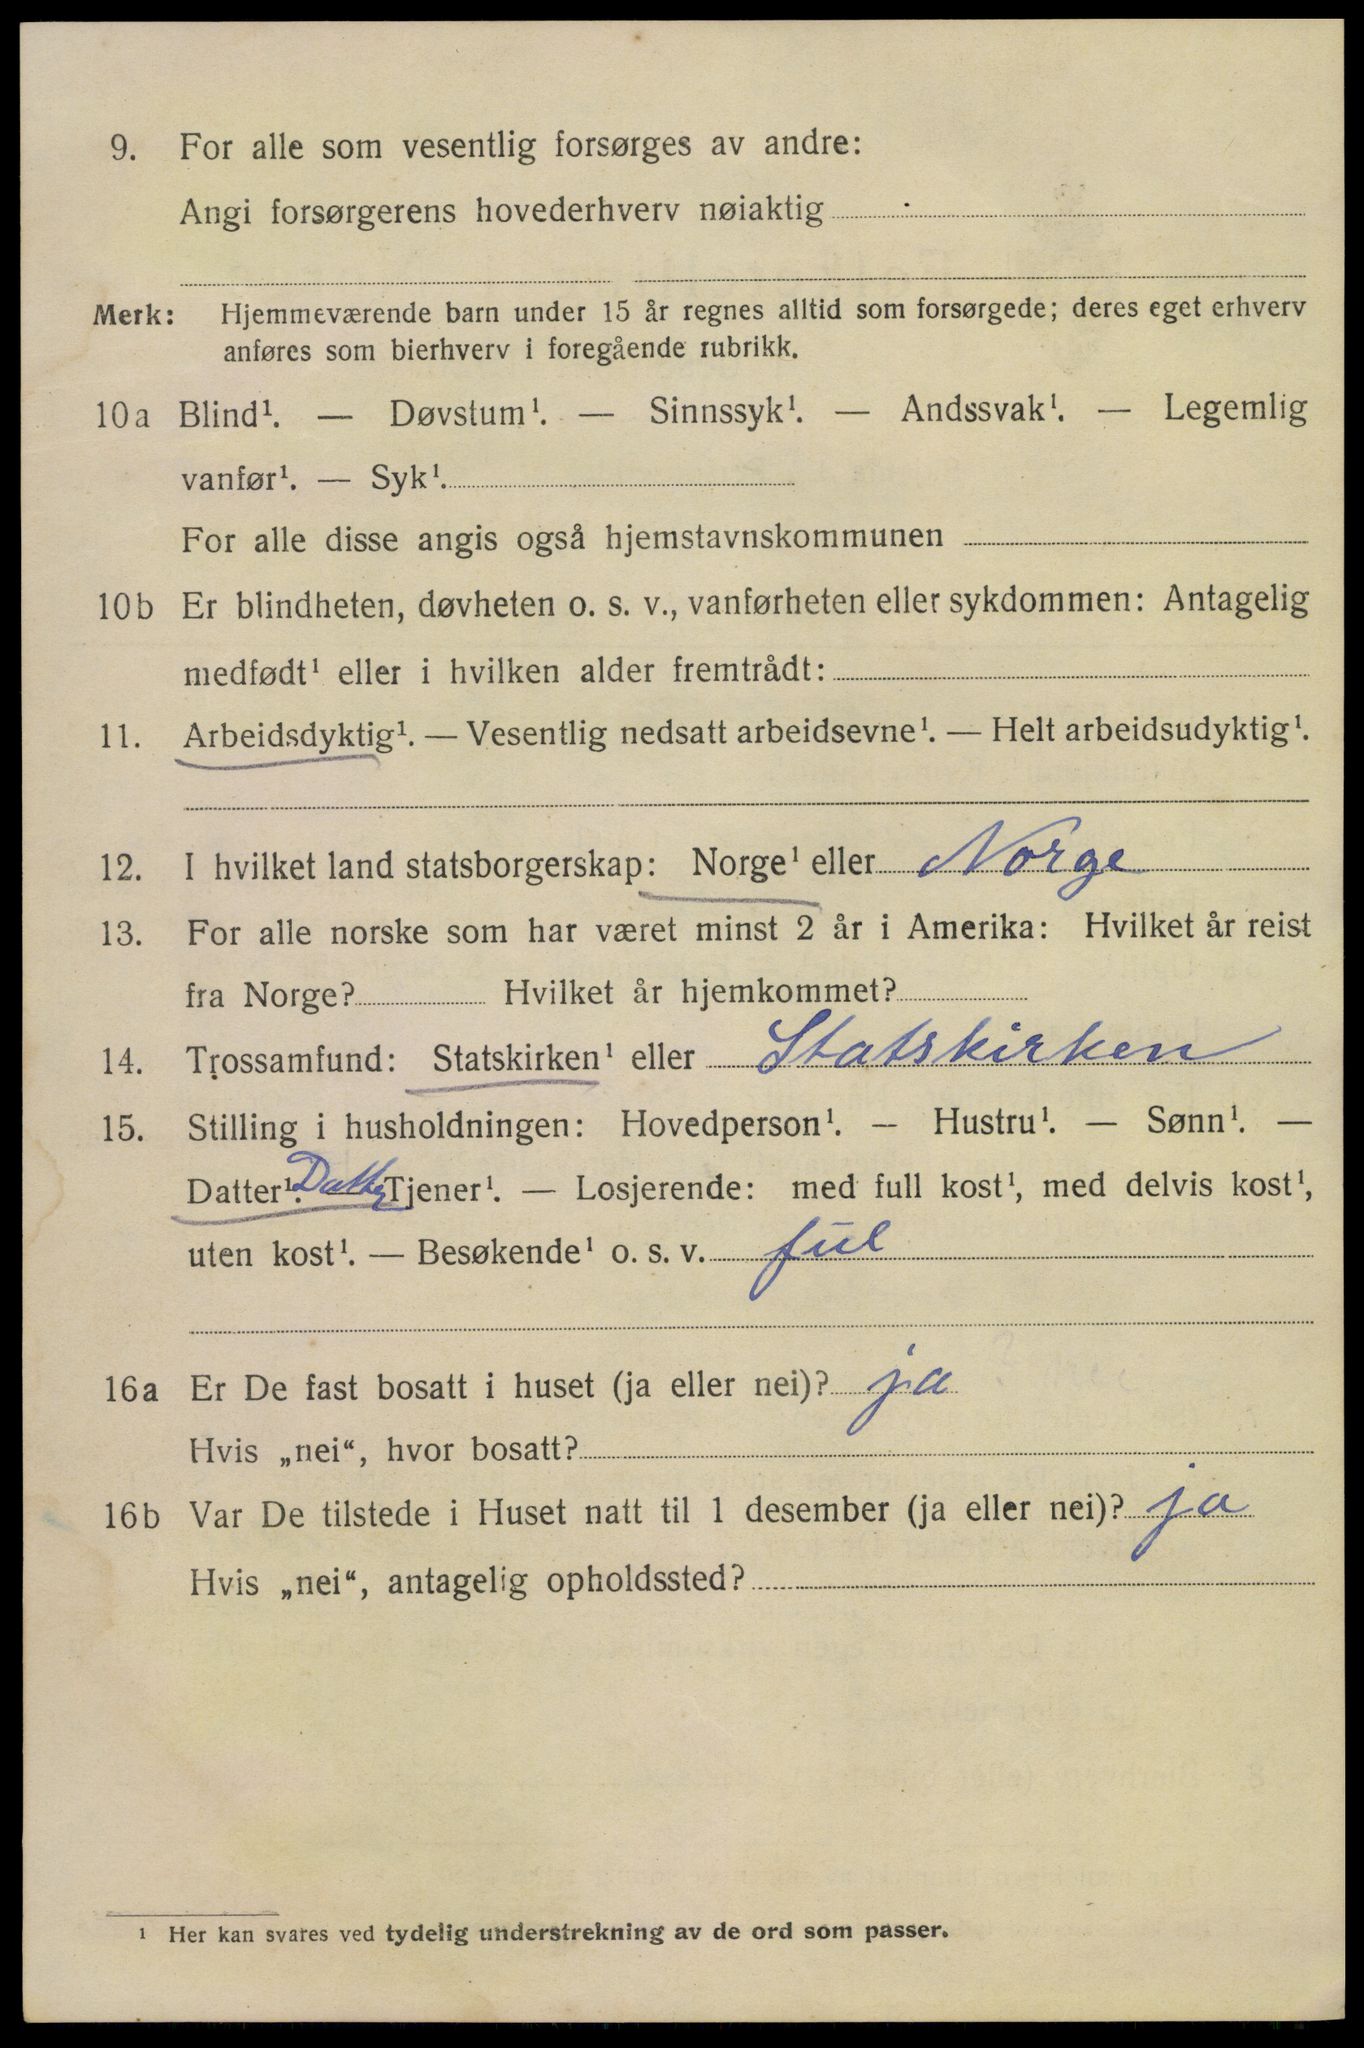 9. For alle som vesentlig forsørges av andre:
Angi forsørgerens hovederhverv nøiaktig
Merk: Hjemmeværende barn under 15 år regnes alltid som forsørgede; deres eget erhverv
anføres som bierhverv i foregående rubrikk.
10a Blind¹. — Døvstum¹. — Sinnssyk¹. — Andssvak¹. — Legemlig
vanfør¹. — Syk¹.
For alle disse angis også hjemstavnskommunen
10b Er blindheten, døvheten o. s. v., vanførheten eller sykdommen: Antagelig
medfødt¹ eller i hvilken alder fremtrådt:
11. Arbeidsdyktig¹. — Vesentlig nedsatt arbeidsevne¹. — Helt arbeidsudyktig¹.
12. I hvilket land statsborgerskap: Norge¹ eller Norge
13. For alle norske som har været minst 2 år i Amerika: Hvilket år reist
fra Norge? Hvilket år hjemkommet?
14. Trossamfund: Statskirken¹ eller Statskirken
15. Stilling i husholdningen: Hovedperson¹. — Hustru¹. — Sønn¹. —
Datter¹. Datter Tjener¹. — Losjerende: med full kost¹, med delvis kost¹,
uten kost¹. — Besøkende¹ o. s. v. ful
16a Er De fast bosatt i huset (ja eller nei)? ja
Hvis „nei“, hvor bosatt?
16b Var De tilstede i Huset natt til 1 desember (ja eller nei)? ja
Hvis „nei“, antagelig opholdssted?
¹ Her kan svares ved tydelig understrekning av de ord som passer.